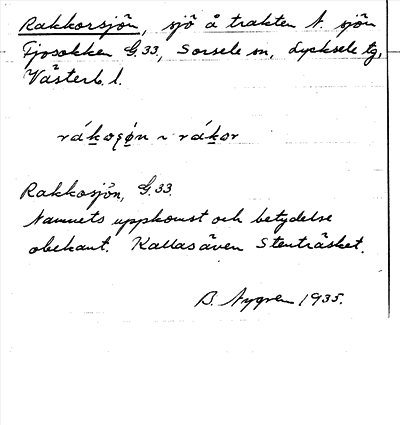 Rakkorsjön, sjö å trakten N. sjön
Tjosokken G.33, Sorsele sn, Lycksele tg,
Västerb. l.
rákoşø̣n ~ rákor
Rakkosjön, G.33.
Namnets uppkomst och betydelse
obekant. Kallas även Stenträsket.
B. Nygren 1935.